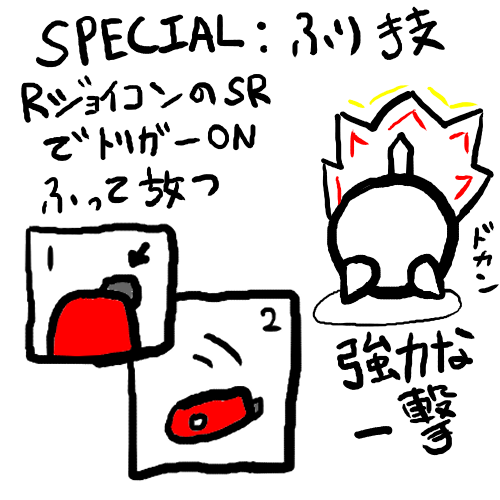 SPECIAL: ふり技
RジョイコンのSR
でトリガーON
ふって放つ
1
2
ドカン
強力な
一撃